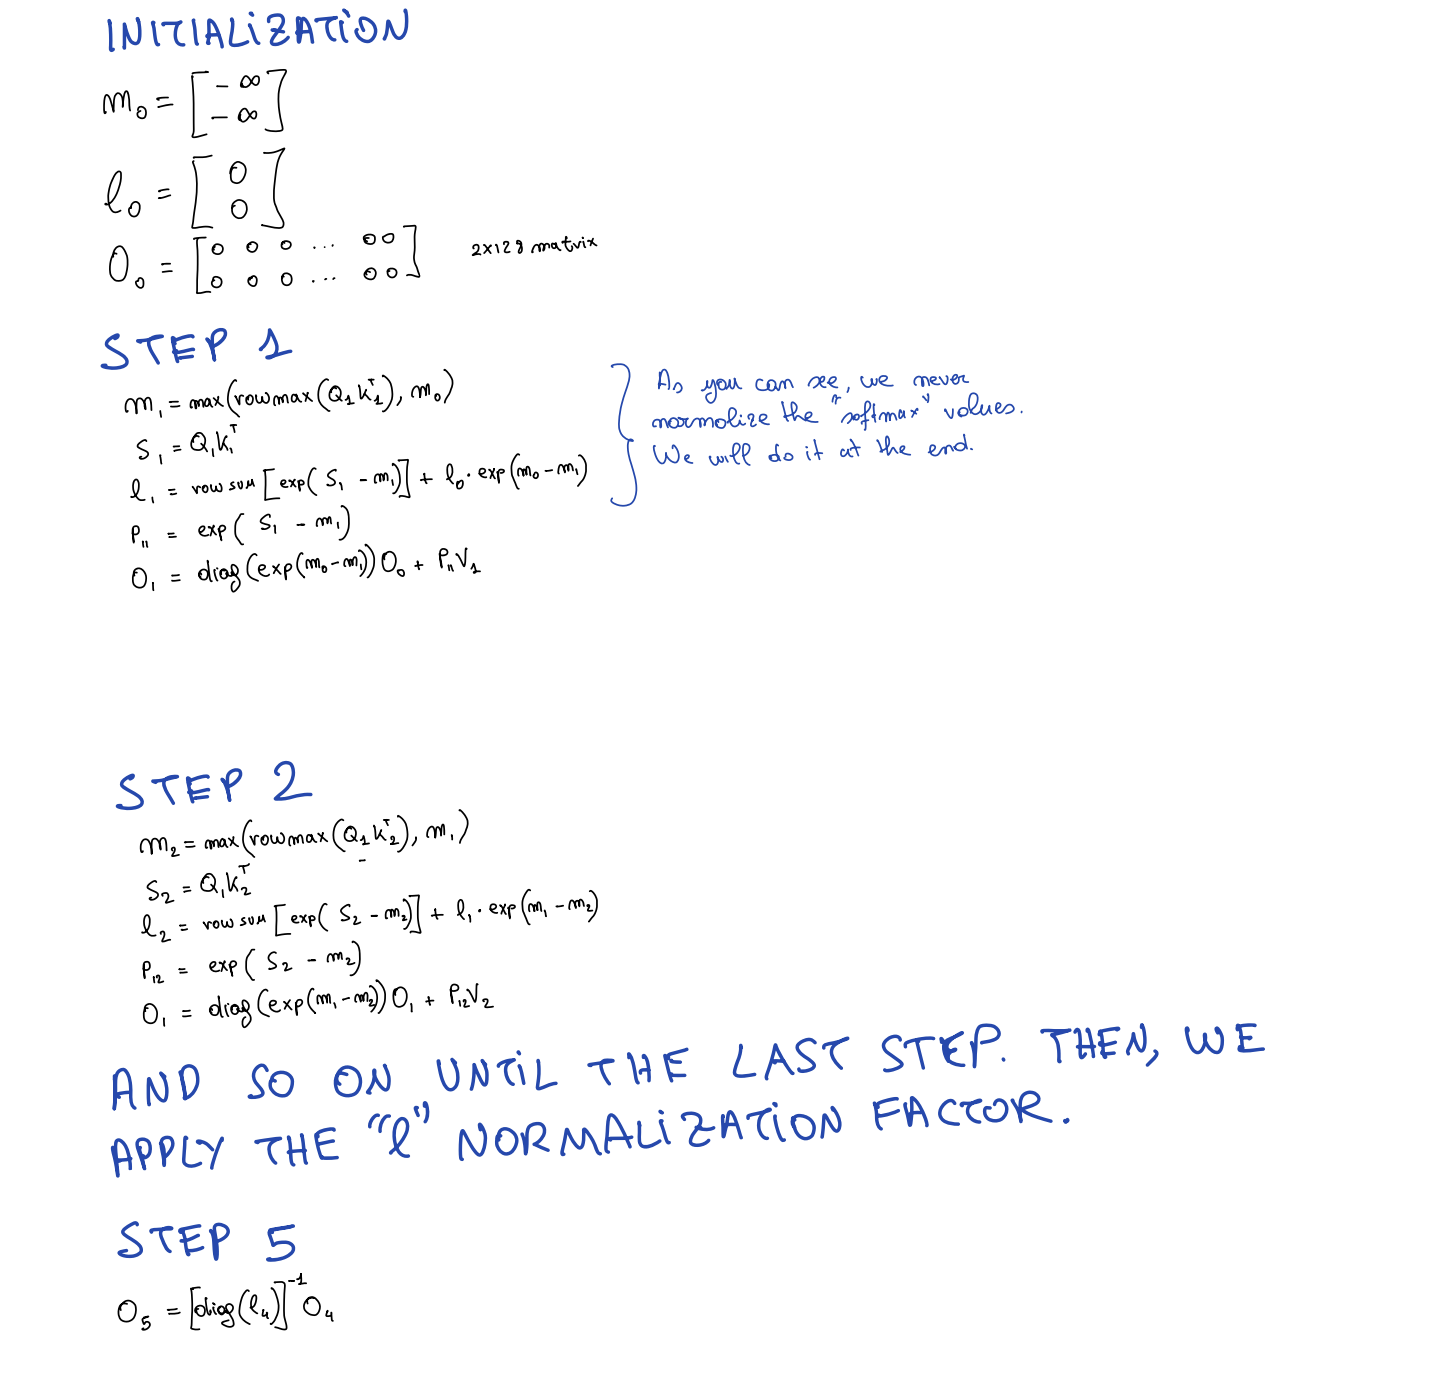 INITIALIZATION
m₀ = [-∞
-∞]
l₀ = [0
0]
O₀ = [0 0 0 ... 0 0
0 0 0 ... 0 0] 2x128 matrix
STEP 1
m₁ = max(rowmax(Q₁K₁ᵀ), m₀)
S₁ = Q₁K₁ᵀ
l₁ = rowsum[exp(S₁ - m₁)] + l₀ · exp(m₀ - m₁)
P₁₁ = exp(S₁ - m₁)
O₁ = diag(exp(m₀ - m₁))O₀ + P₁₁V₁
As you can see, we never
normalize the "softmax" values.
We will do it at the end.
STEP 2
m₂ = max(rowmax(Q₁K₂ᵀ), m₁)
S₂ = Q₁K₂ᵀ
l₂ = rowsum[exp(S₂ - m₂)] + l₁ · exp(m₁ - m₂)
P₁₂ = exp(S₂ - m₂)
O₁ = diag(exp(m₁ - m₂))O₁ + P₁₂V₂
AND SO ON UNTIL THE LAST STEP. THEN, WE
APPLY THE "l" NORMALIZATION FACTOR.
STEP 5
O₅ = [diag(l₄)]⁻¹ O₄